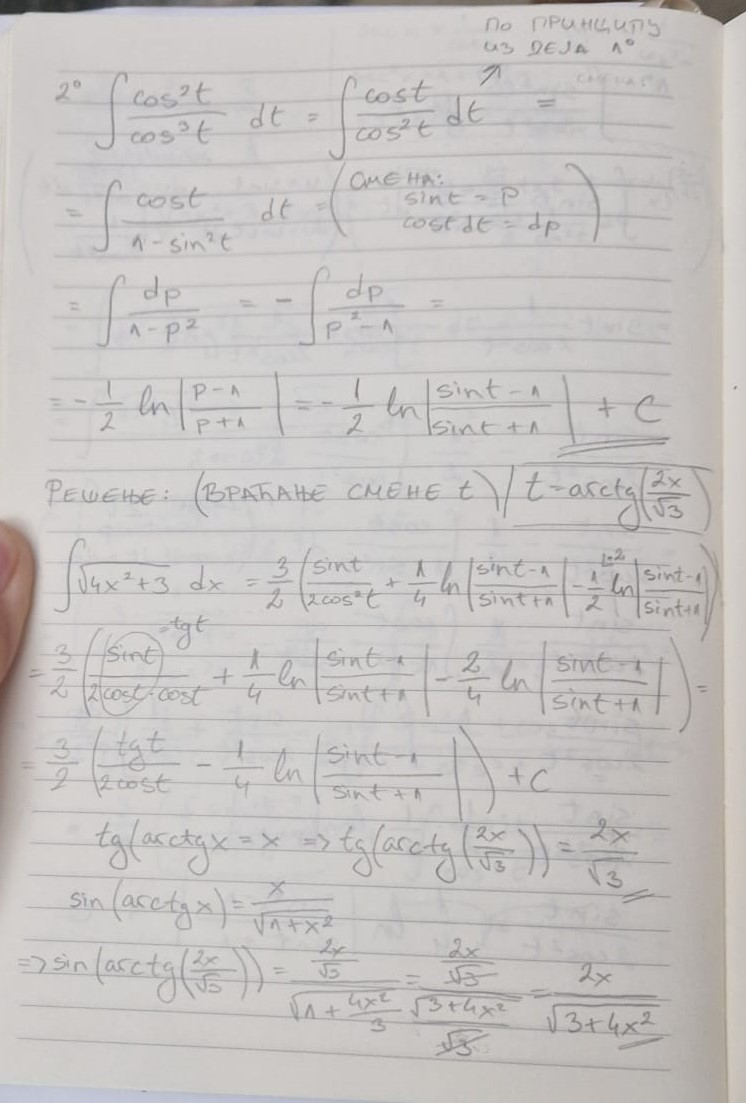 ПО ПРИНЦИПУ
ИЗ ДЕЛА 1°
2° ∫ cos²t/cos³t dt = ∫ cost/cos²t dt =
= ∫ cost/(1-sin²t) dt = (СМЕНА: sint = p, cost dt = dp)
= ∫ dp/(1-p²) = - ∫ dp/(p²-1) =
= -1/2 ln|(p-1)/(p+1)| = -1/2 ln|(sint-1)/(sint+1)| + C
РЕШЕЊЕ: (ВРАЋАЊЕ СМЕНЕ t) / t=arctg(2x/√3)
∫ √(4x²+3) dx = 3/2 (sint/(2cos²t) + 1/4 ln|(sint-1)/(sint+1)| - 1/2 ln|(sint-1)/(sint+1)|)
= 3/2 (sint/(2cost·cost) + 1/4 ln|(sint-1)/(sint+1)| - 2/4 ln|(sint-1)/(sint+1)|) =
=tgt
= 3/2 (tgt/(2cost) - 1/4 ln|(sint-1)/(sint+1)|) + C
tg(arctgx = x => tg(arctg(2x/√3)) = 2x/√3
sin(arctgx) = x/√(1+x²)
=> sin(arctg(2x/√3)) = (2x/√3)/√(1+4x²/3) = (2x/√3)/(√(3+4x²)/√3) = 2x/√(3+4x²)